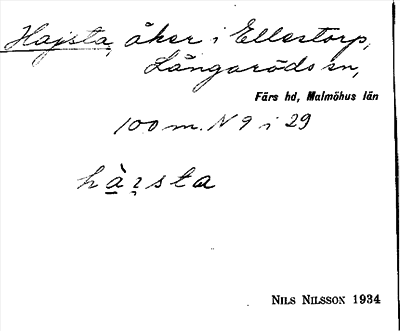 Hajsta, åker i Ellestorp,
Långaröds sn,
Färs hd, Malmöhus län
100 m. N 9 i 29
hàɿsta
NILS NILSSON 1934